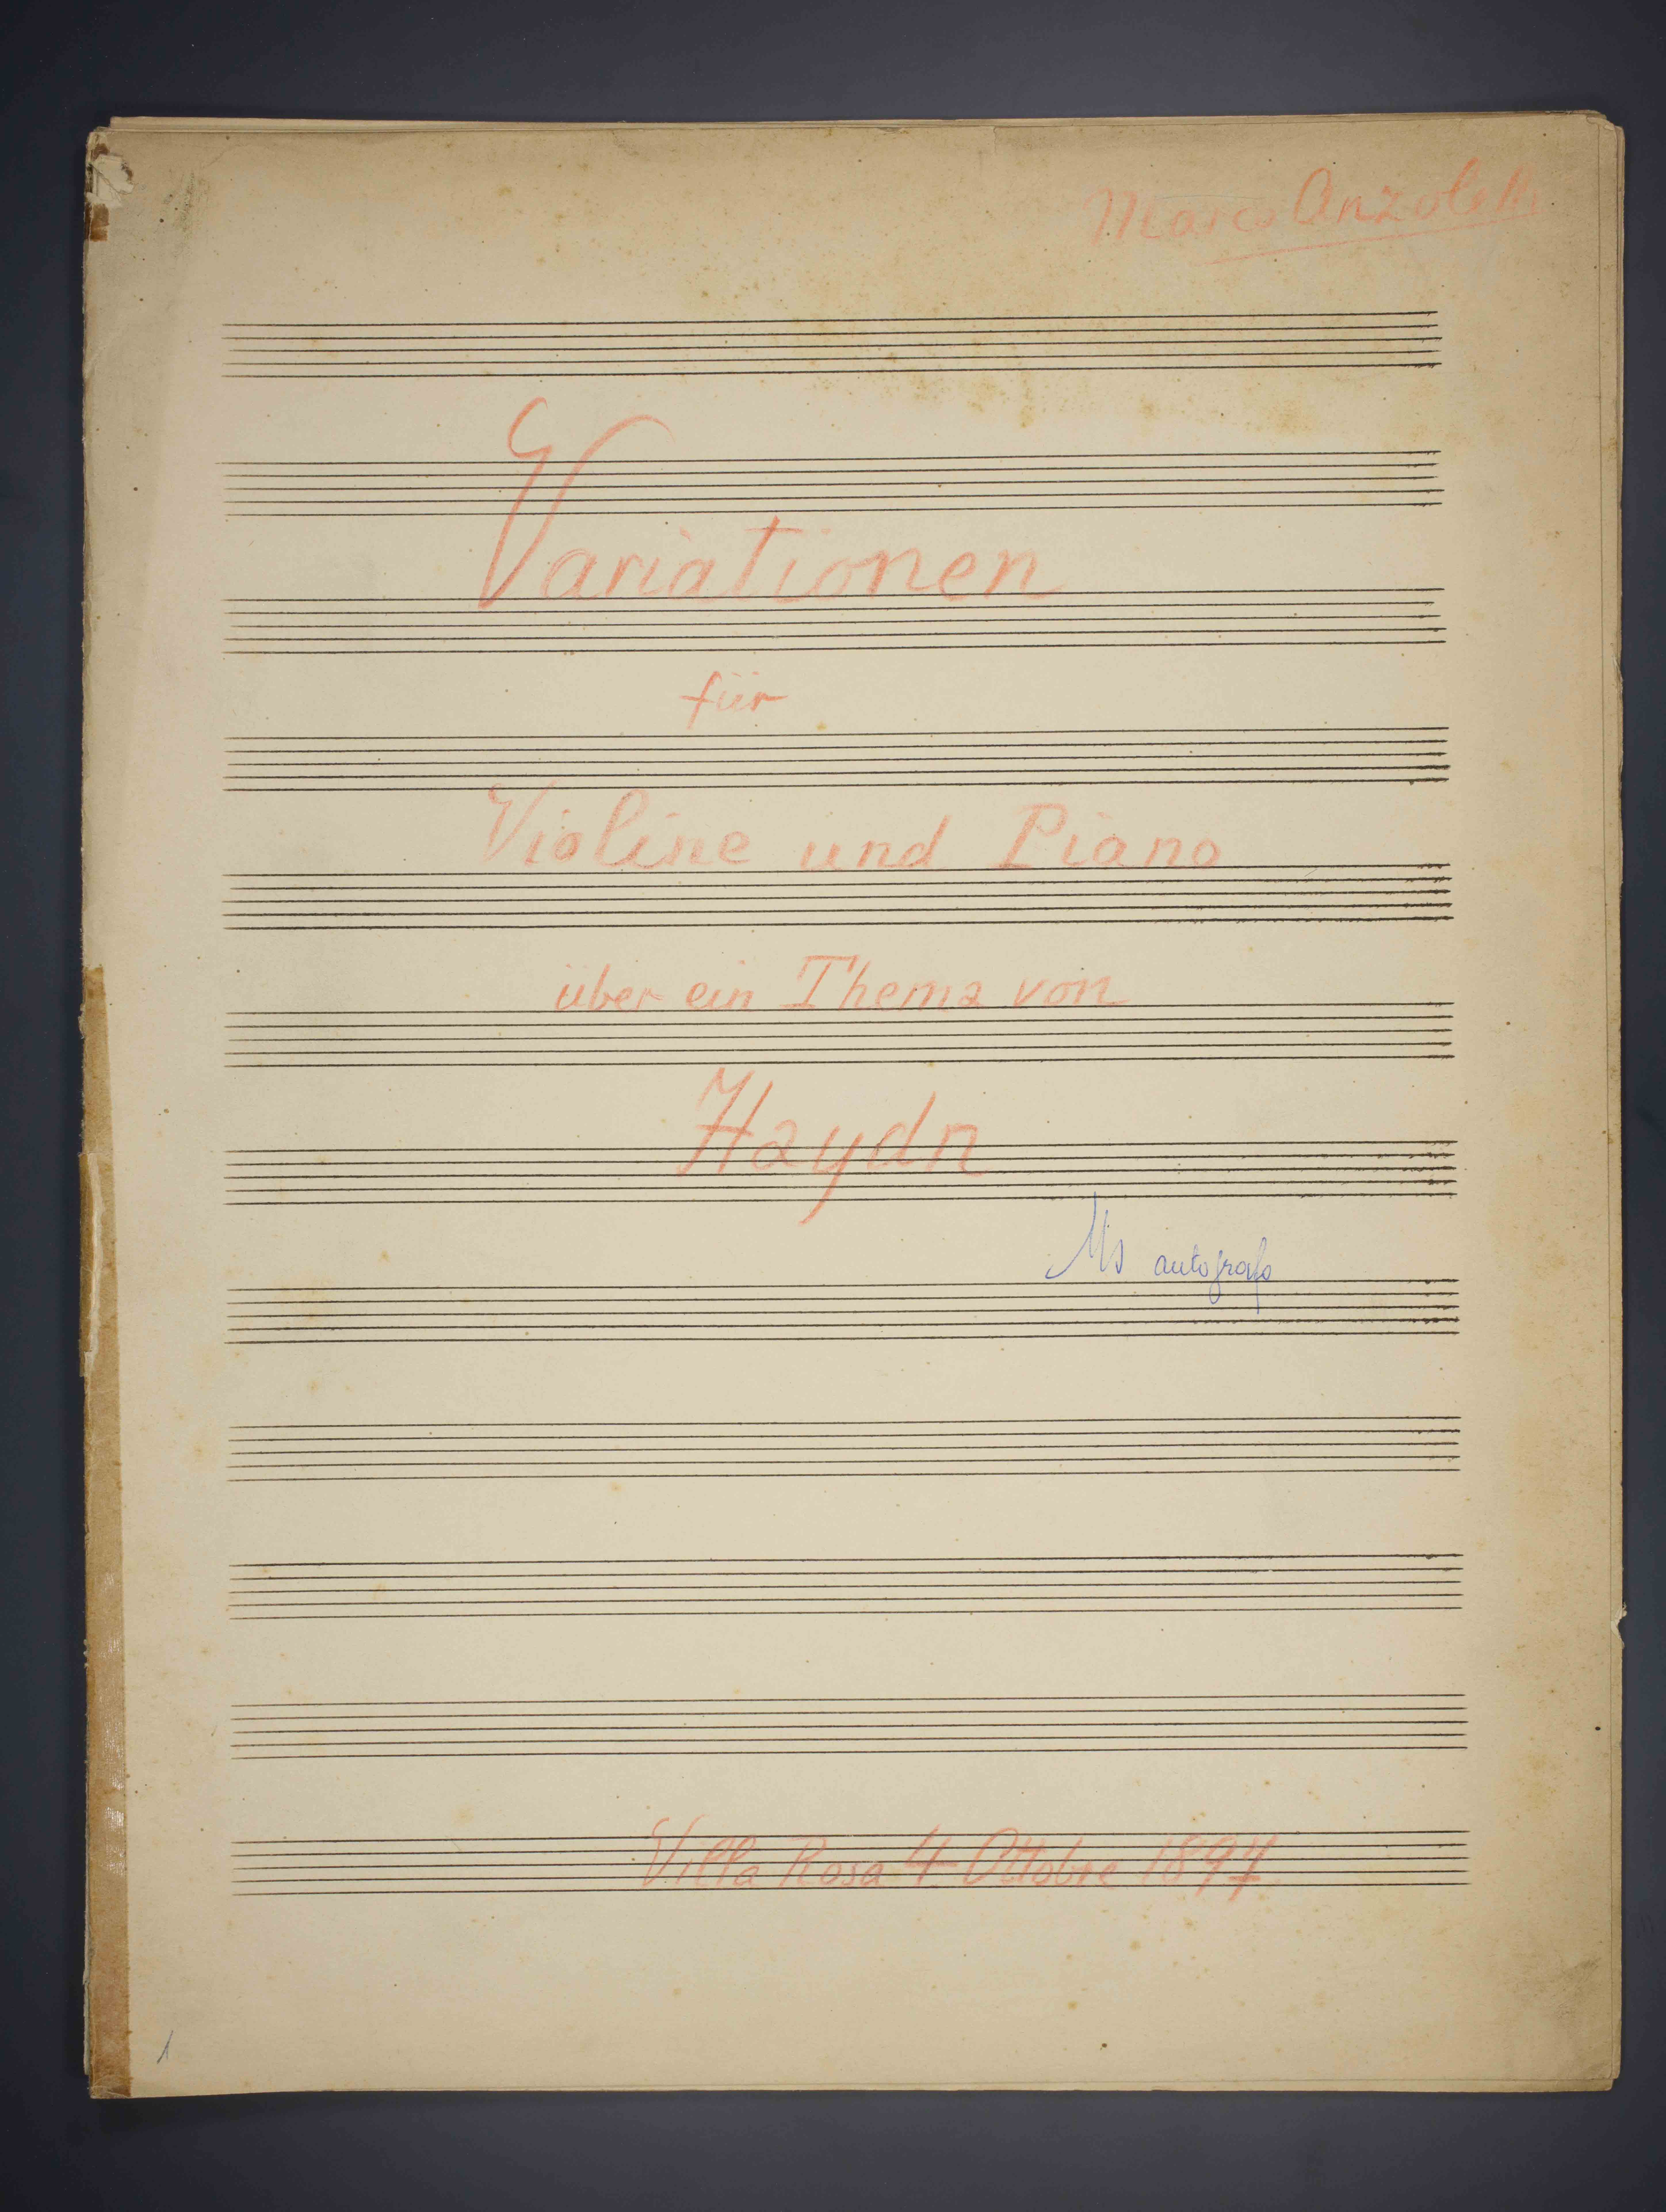 Marco Anzoletti
Variationen
für
Violine und Piano
über ein Thema von
Haydn
Ms autografo
Villa Rosa 4 Ottobre 1897
1